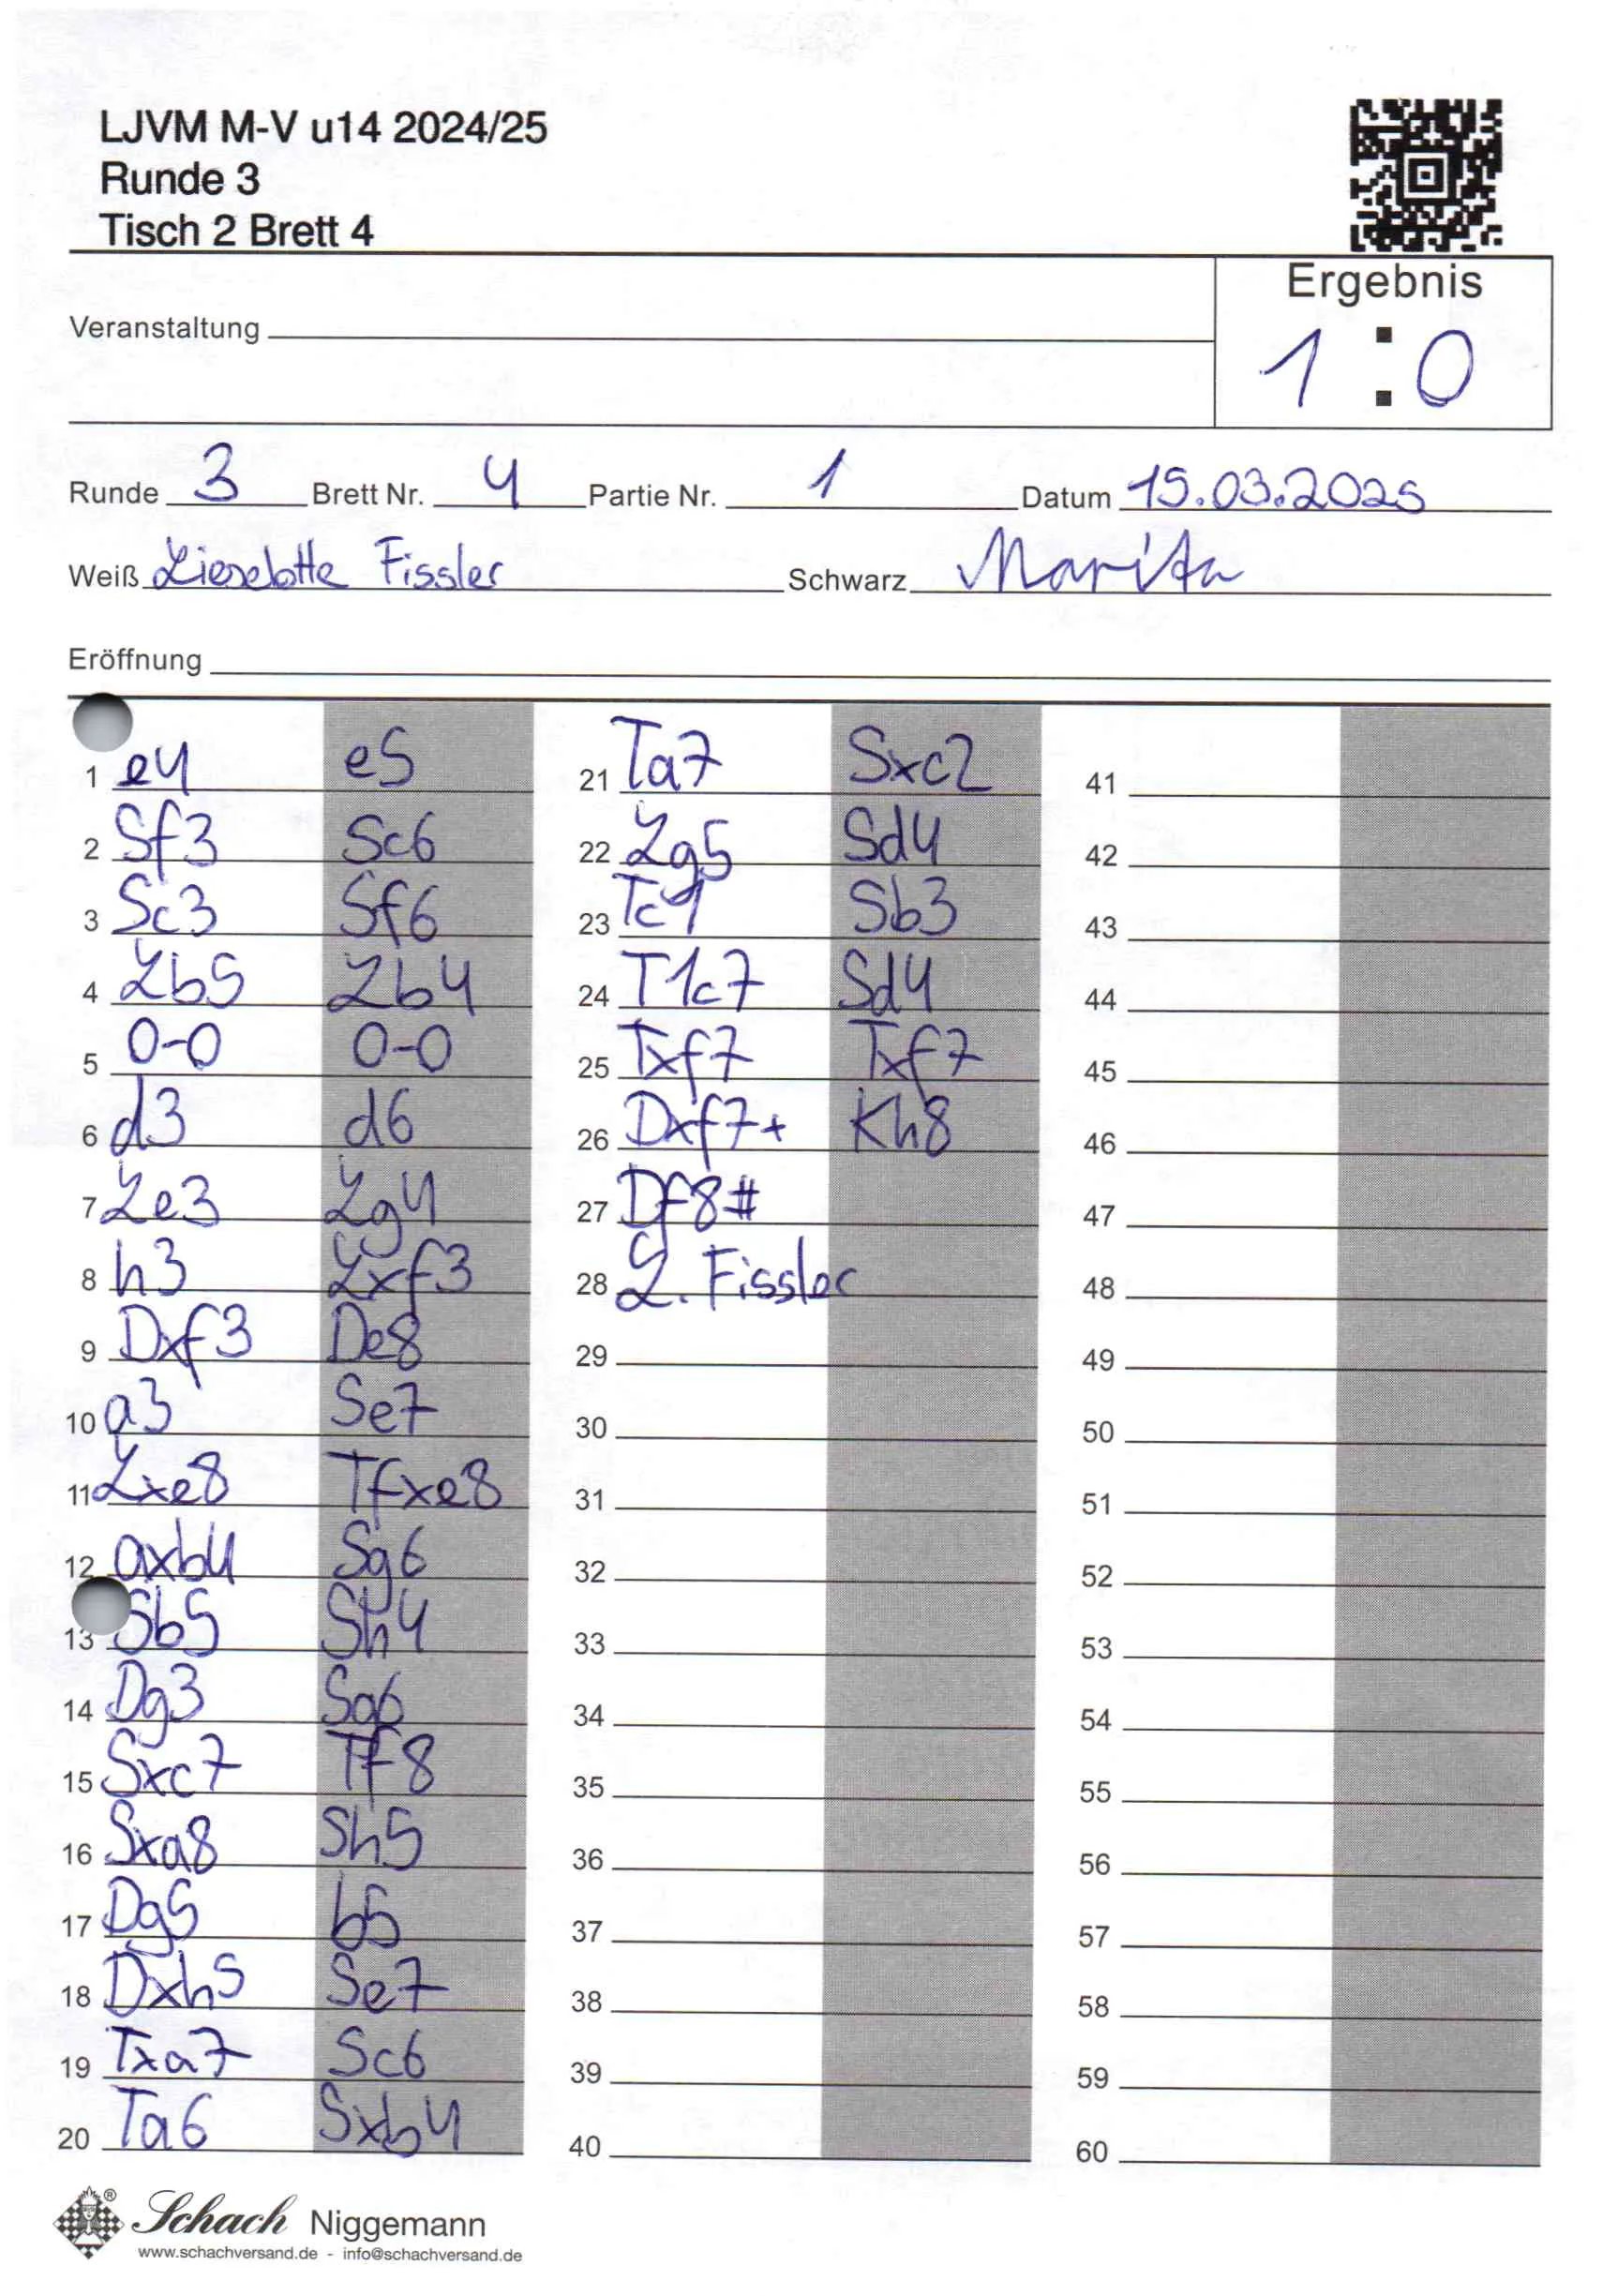 LJVM M-V u14 2024/25
Runde 3
Tisch 2 Brett 4
Ergebnis
Veranstaltung
1 : 0
Runde 3 Brett Nr. 4 Partie Nr. 1 Datum 15.03.2025
Weiß Lieselotte Fissler Schwarz Marita
Eröffnung
1 e4 e5
2 Sf3 Sc6
3 Sc3 Sf6
4 Lb5 Lb4
5 0-0 0-0
6 d3 d6
7 Le3 Lg4
8 h3 Lxf3
9 Dxf3 De8
10 a3 Se7
11 Lxe8 Tfxe8
12 axb4 Sg6
13 Sb5 Sh4
14 Dg3 Sg6
15 Sxc7 Tf8
16 Sxa8 Sh5
17 Dg5 b5
18 Dxh5 Se7
19 Txa7 Sc6
20 Ta6 Sxb4
21 Ta7 Sxc2
22 Lg5 Sd4
23 Tc1 Sb3
24 T1c7 Sd4
25 Txf7 Txf7
26 Dxf7+ Kh8
27 Df8#
28 L. Fissler
29
30
31
32
33
34
35
36
37
38
39
40
41
42
43
44
45
46
47
48
49
50
51
52
53
54
55
56
57
58
59
60
® Schach Niggemann
www.schachversand.de - info@schachversand.de